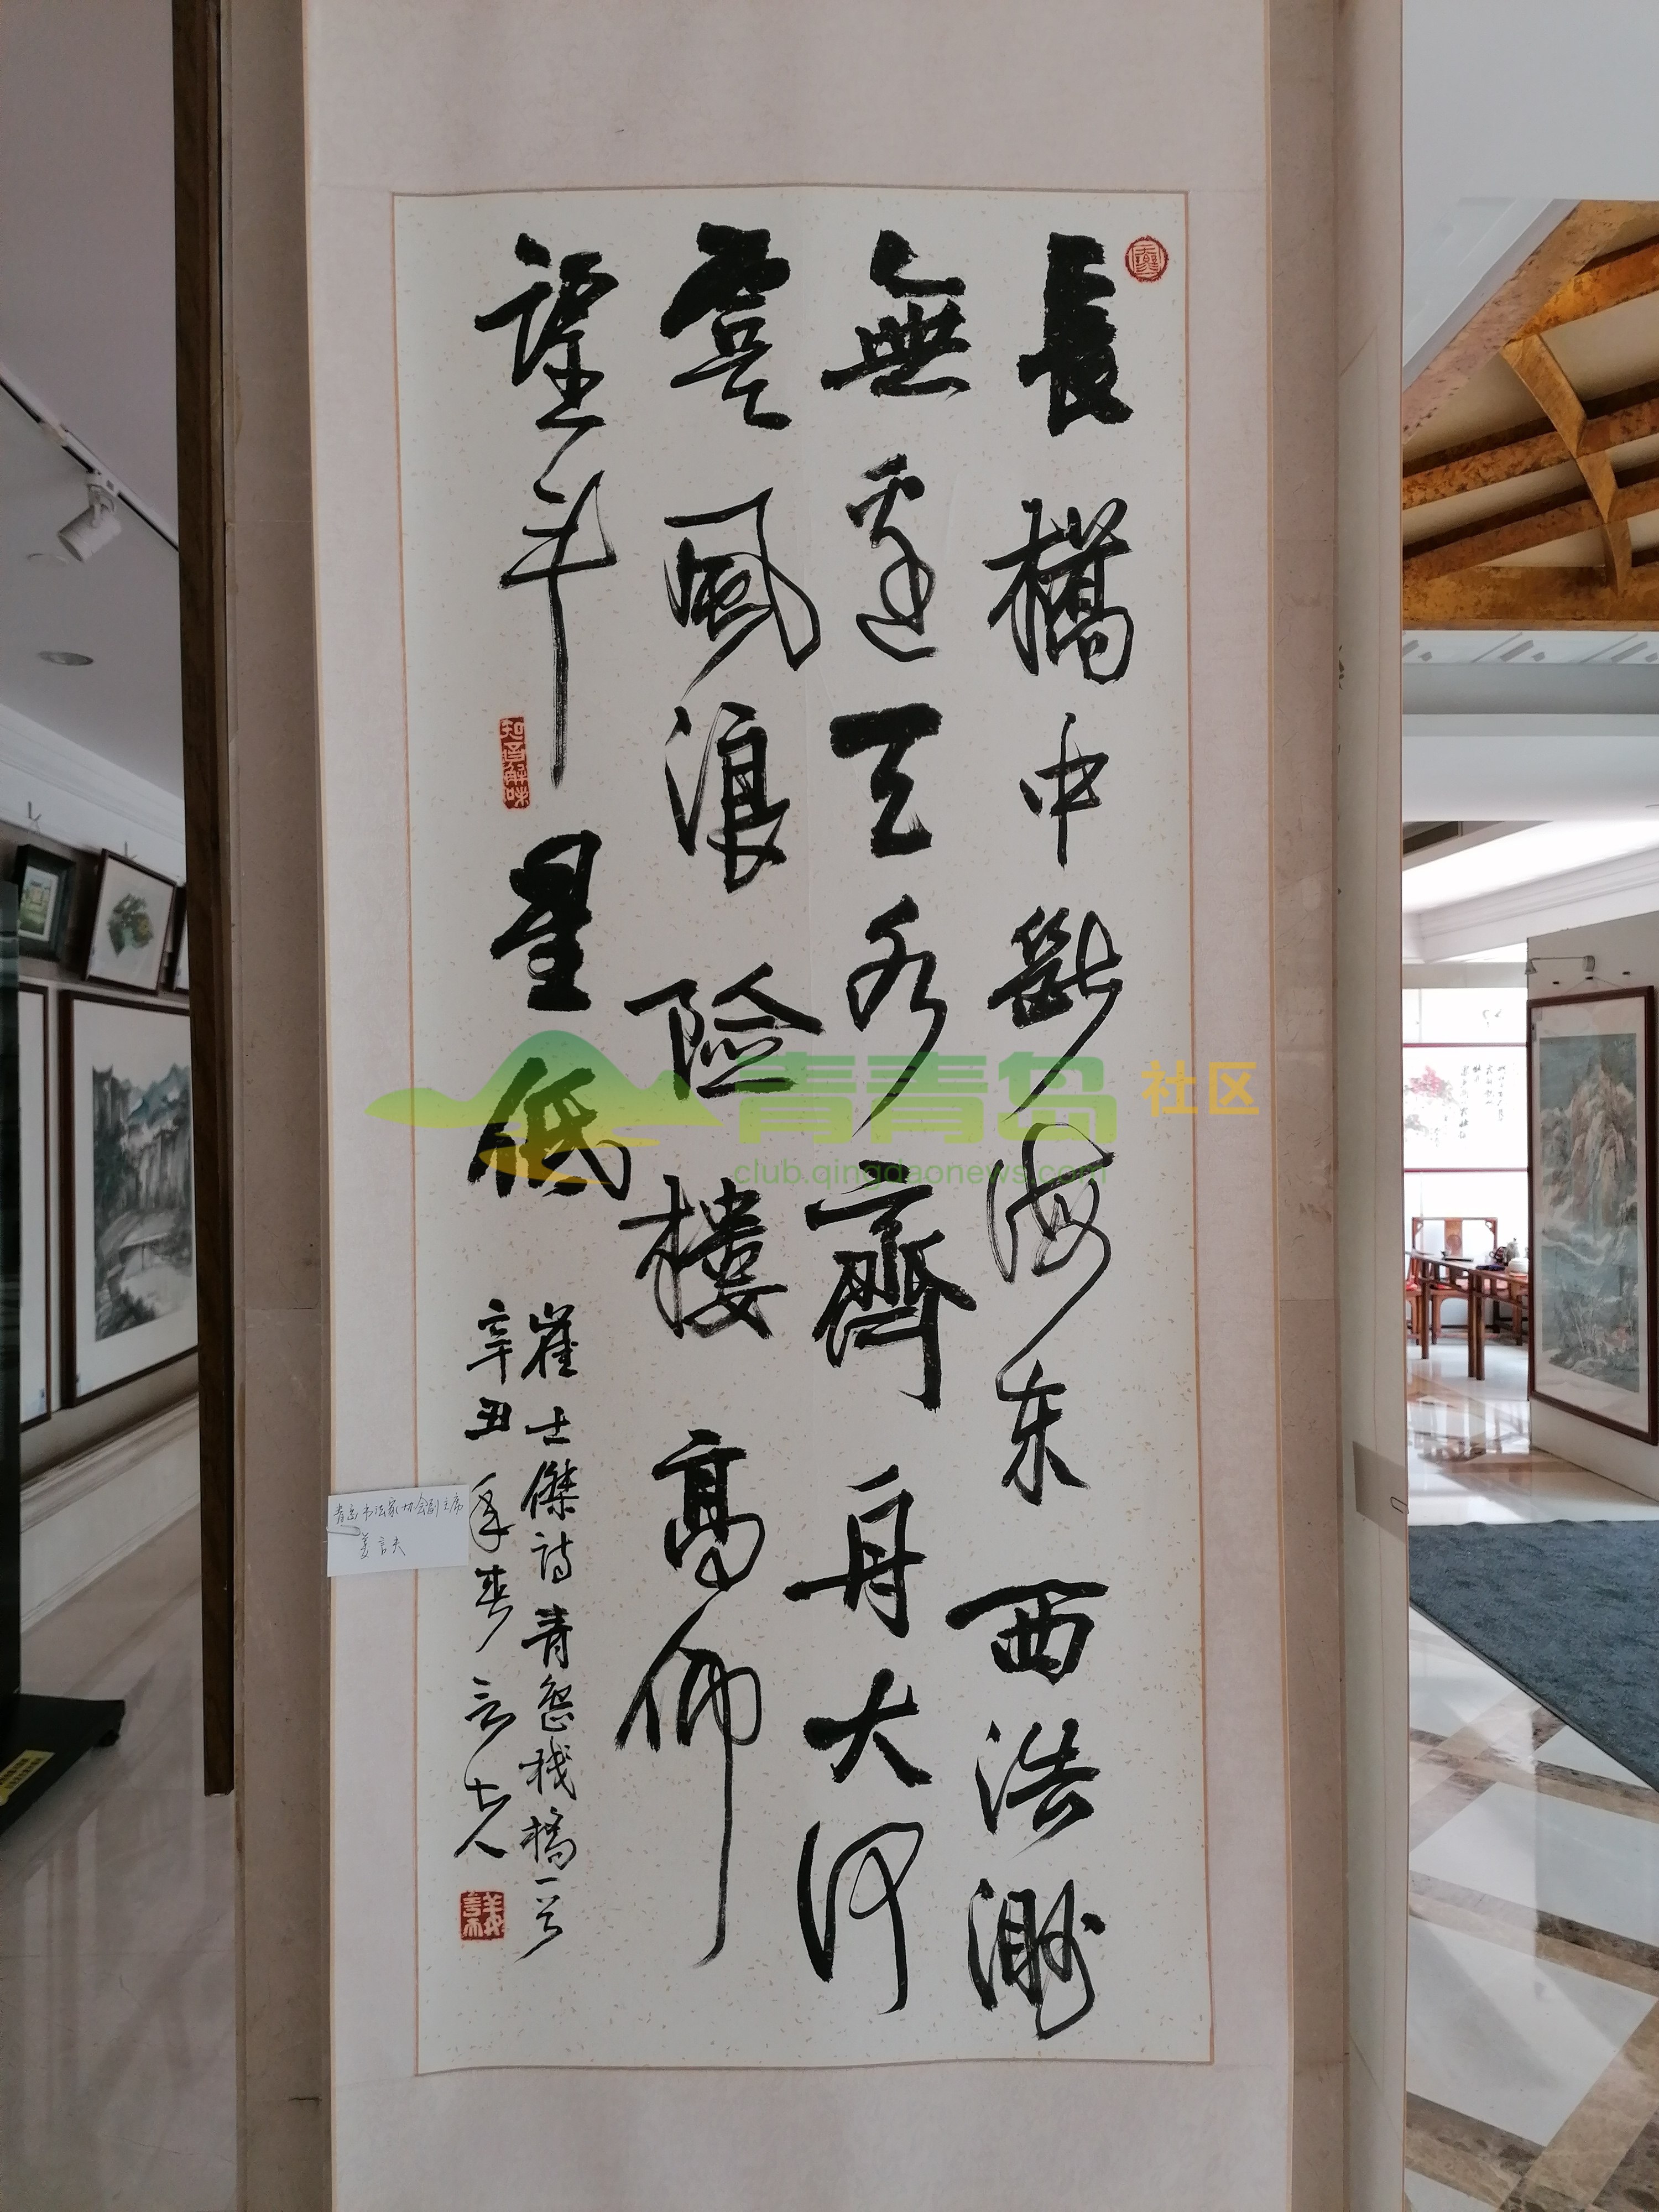 長橋中斷海东西浩渺
無邊天水齊舟大何
虞風浪險樓高仰
望斗星低
崔士傑詩青島棧橋一首
辛丑年春言夫
知音解味
青岛书法家协会副主席
姜言夫
青青岛社区
club.qingdaonews.com